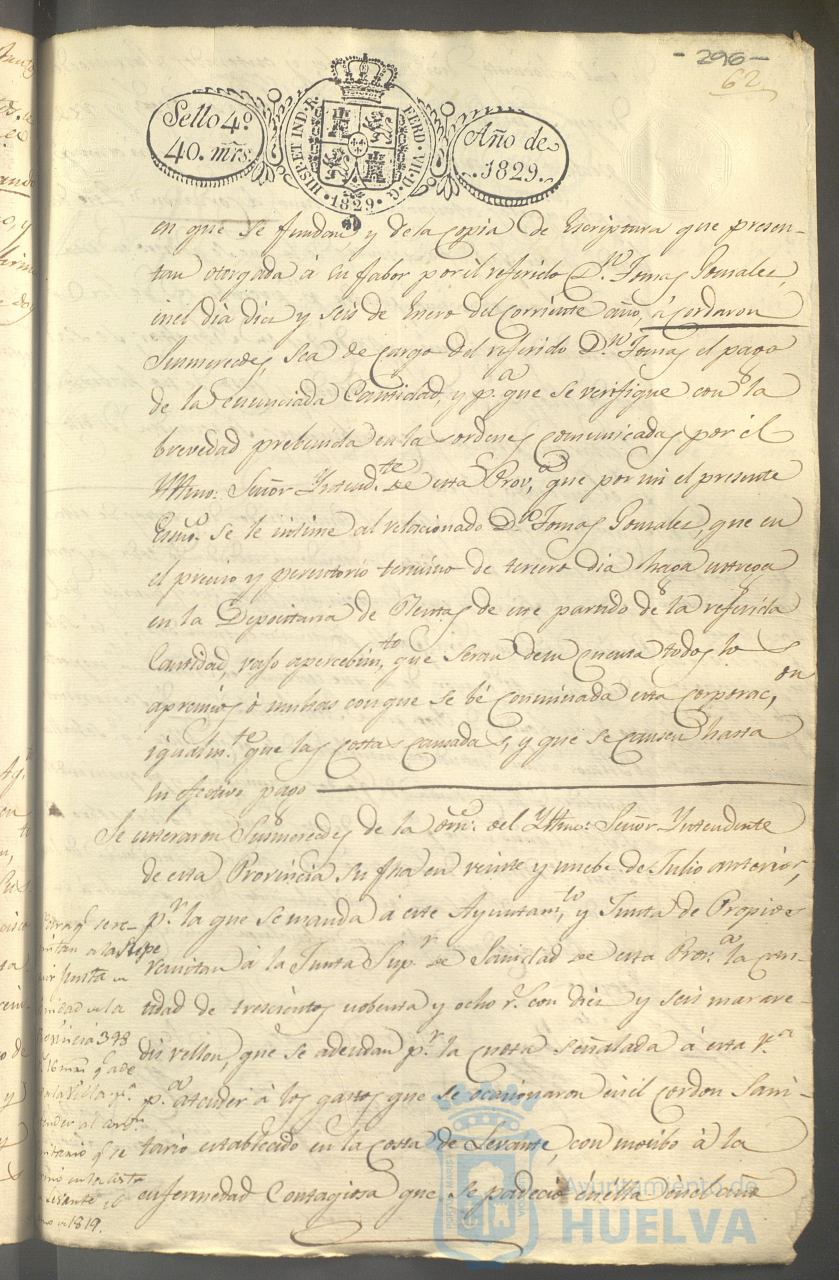 - 296 -
62
Sello 4º
40. mrs.
HISP. ET IND. R.
FERD. VII. D. G.
· 1829 ·
Año de
1829.
en que se fundan y de la Copia de Escriptura que presen-
tan otorgada á su fabor por el referido D.n Tomas Gonsales,
in el dia diez y seis de Enero del corriente año, acordaron
Susmercedes sea de cargo del referido D.n Tomas el pago
de la enunciada Cantidad, y p.a que se verifique con la
brevedad prebenida en las ordenes comunicadas por el
Yttmo: Señor Yntend.te de esta Prov.a, que por mi el presente
Esno. se le intime al relacionado D.n Tomas Gonsales, que en
el preciso y perentorio termino de tercero dia haga entrega
en la Depocitaria de Rentas de este partido de la referida
Cantidad, vajo apercebim.to que seran de su cuenta todos los
apremios ó multas con que se bé conminada esta corporac.on
igualm.te que las costas causadas, y que se causen hasta
su efectivo pago
Se enteraron Susmercedes de la orn. del Yttmo: Señor Yntendente
de esta Provincia su fha en veinte y nuebe de Julio anterior,
p.r la que se manda á este Ayuntam.to y Junta de Propios
remitan á la Junta Sup.r de Sanidad de esta Prov.a la can-
tidad de trescientos nobenta y ocho r.s con diez y seis marave-
dis vellon, que se adeudan p.r la cuota señalada á esta V.a
p.a atender á los gastos que se ocacionaron en el cordon Sani-
tario establecido en la costa de Levante, con motibo á la
enfermedad Contagiosa que se padeció en ella en el año
q.e se re-
mitan a la Supe
rior Junta de
Sanidad de la
Provincia 398
16 mrs q.e ade
la Villa p.a
atender al cordon
sanitario q.e se
en la costa
de Levante el
año de 1819.
Ayuntamiento de
HUELVA